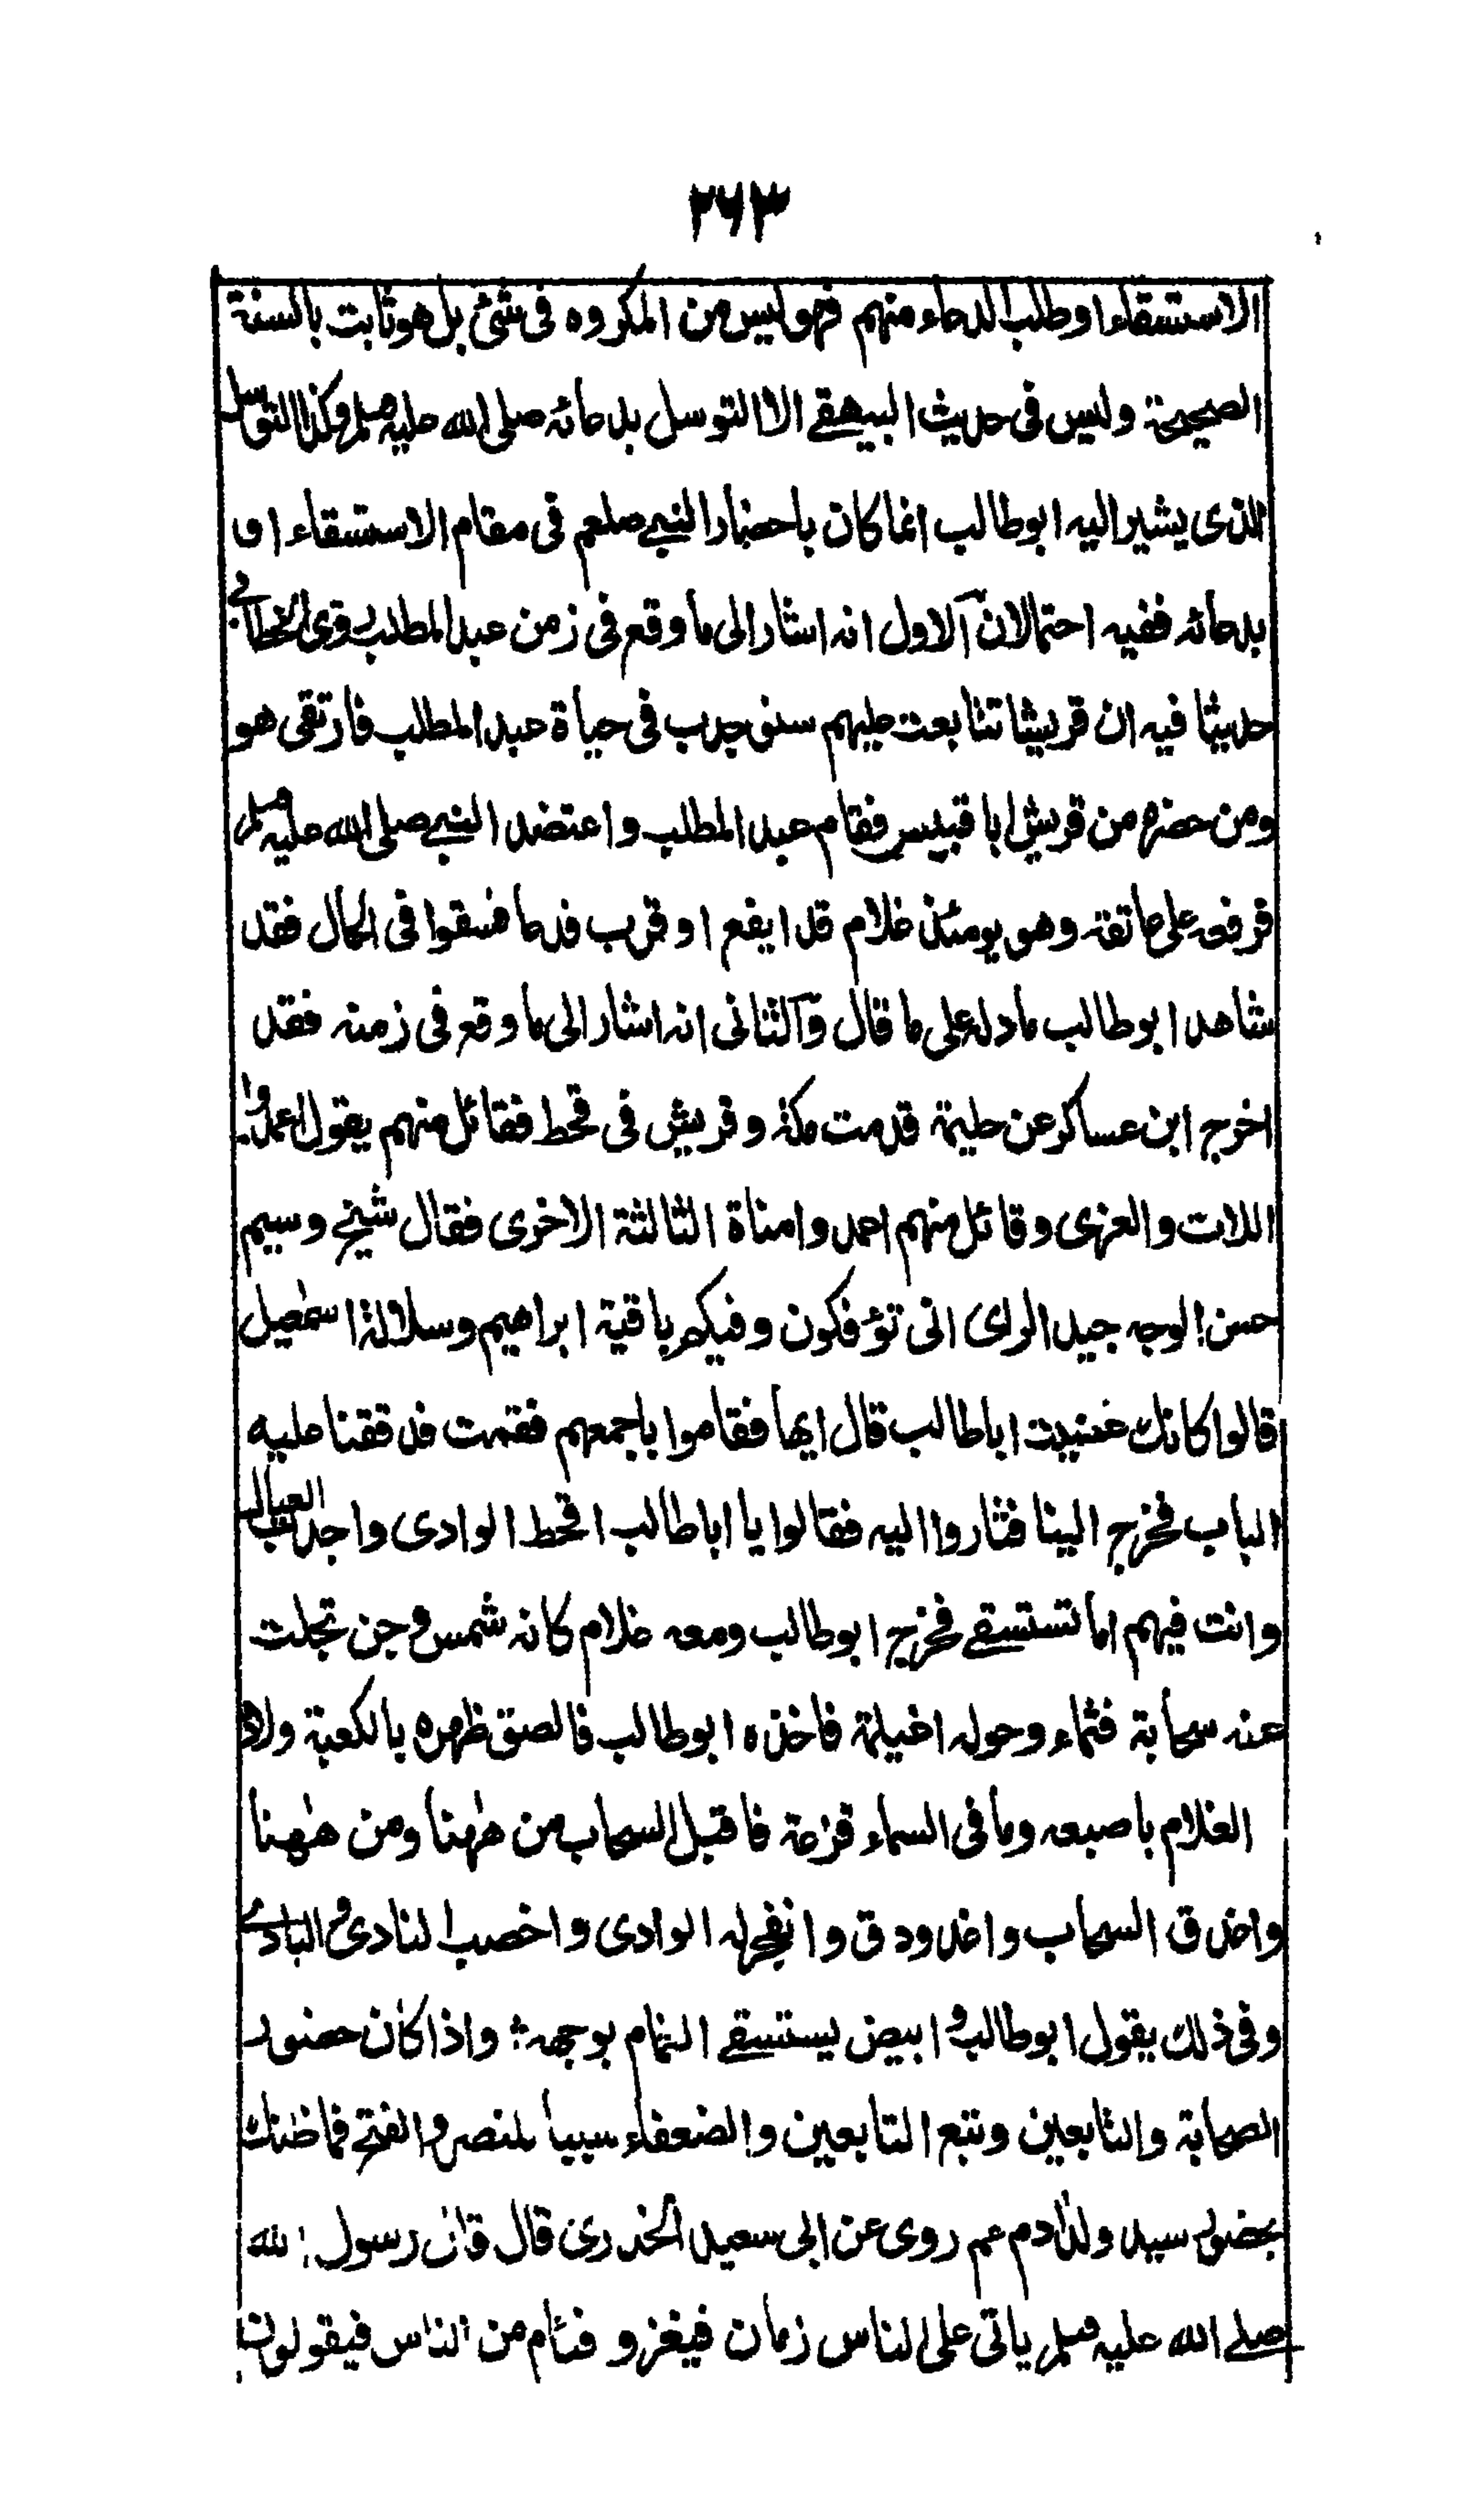 ٢٦٣
الاستسقاء او طلب الدعاء منهم فهو ليس من المكروه فى شئ بل هو ثابت بالسنة
الصحيحة وليس فى حديث البيهقي الا التوسل بدعائه صلى الله عليه وسلم وكذا التوسل
الذى يشير اليه ابو طالب انما كان باحضار النبي صلعم فى مقام الاستسقاء او
بدعائه ففيه احتمالان آلاول انه اشار الى ما وقع فى زمن عبد المطلب روى الخطابي
حديثا فيه ان قريشا تتابعت عليهم سنو جدب فى حياة عبد المطلب فارتقى هو
ومن حضره من قريش ابا قبيس فقام عبد المطلب واعتضد النبي صلى الله عليه وسلم
فرفعه على عاتقه وهو يومئذ غلام قد ايفع او قرب فدعا فسقوا فى الحال فقد
شاهد ابو طالب ما دله على ما قال وآلثانى انه اشار الى ما وقع فى زمنه فقد
اخرج ابن عساكر عن حليمة قدمت مكة وقريش فى قحط فقائل منهم يقول اعمدوا
اللات والعزى وقائل منهم اعمدوا مناة الثالثة الاخرى فقال شيخ وسيم
حسن الوجه جيد الراى انى تؤفكون وفيكم باقية ابراهيم وسلالة اسمٰعيل
قالوا كانك عنيت ابا طالب قال ايها فقاموا باجمعهم فقمت فدققنا عليه
الباب فخرج الينا فثاروا اليه فقالوا يا ابا طالب اقحط الوادى واجدب العيال
وانت فيهم اما تستسقي فخرج ابو طالب ومعه غلام كانه شمس دجن تجلت
عنه سحابة قتماء وحوله اغيلمة فاخذه ابو طالب فالصق ظهره بالكعبة ولاذ
الغلام باصبعه وما فى السماء قزعة فاقبل السحاب من هٰهنا ومن هٰهنا
واغدق السحاب واغدودق وانفجر له الوادى واخصب النادى والبادي
وفى ذلك يقول ابو طالب و ابيض يستسقي الغمام بوجهه ؛ واذا كان حضور
الصحابة والتابعين وتبع التابعين والضعفاء سببا للنصر والفتح فما ظنك
بحضور سيد ولد آدم عم روى عن ابى سعيد الخدرى قال قال رسول الله
صلے الله عليه وسلم ياتى على الناس زمان فيغزو فئام من الناس فيقولون